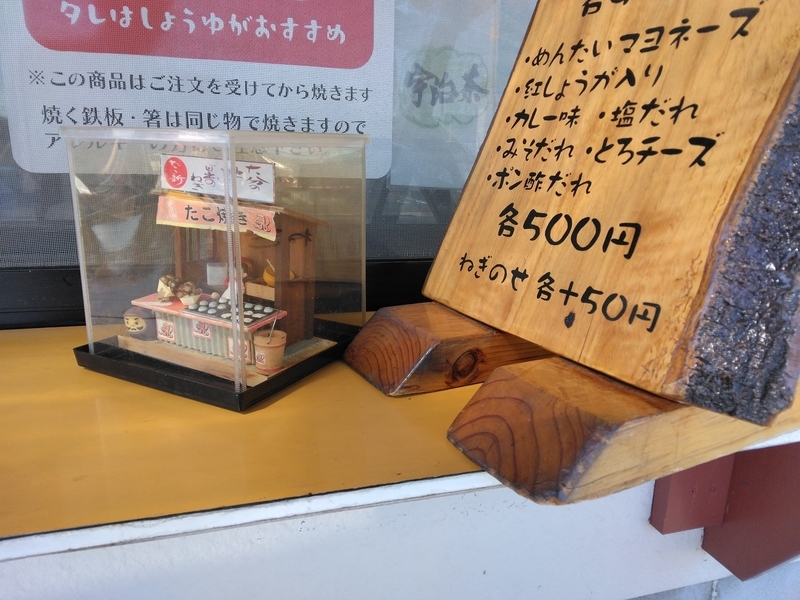 タレはしょうゆがおすすめ
※この商品はご注文を受けてから焼きます
焼く鉄板・箸は同じ物で焼きますので
宇治茶
たこ焼き
・めんたいマヨネーズ
・紅しょうが入り
・カレー味 ・塩だれ
・みそだれ ・とろチーズ
・ポン酢だれ
各500円
ねぎのせ 各+50円